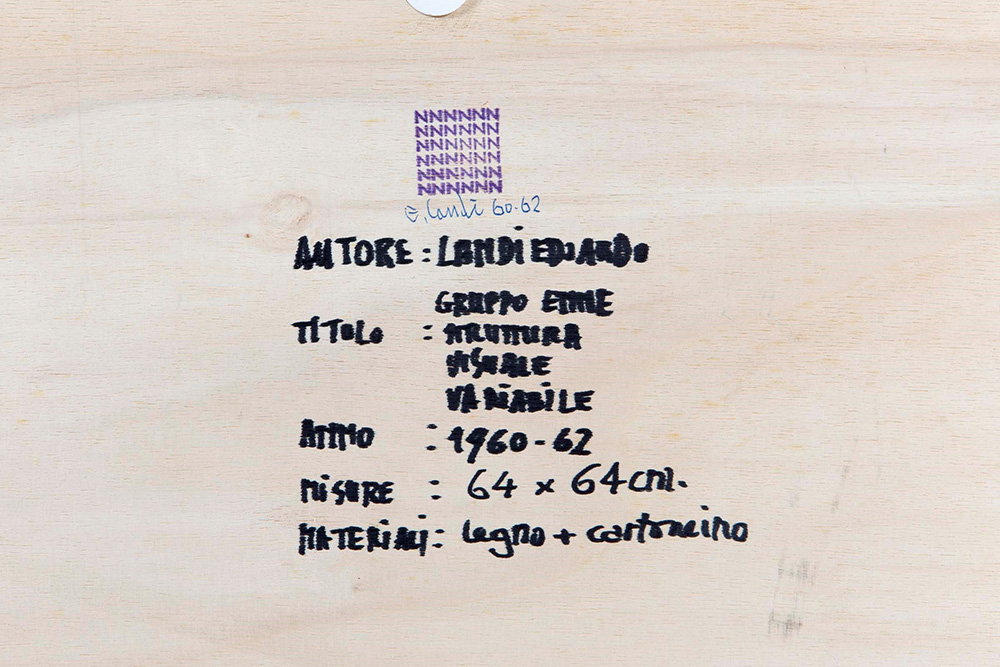 NNNNNN
NNNNNN
NNNNNN
NNNNNN
NNNNNN
NNNNNN
E. Landi 60-62
AUTORE : LANDI EDOARDO
GRUPPO ENNE
TITOLO : STRUTTURA
VISUALE
VARIABILE
ANNO : 1960-62
MISURE : 64 x 64 cm.
MATERIALI: legno + cartoncino